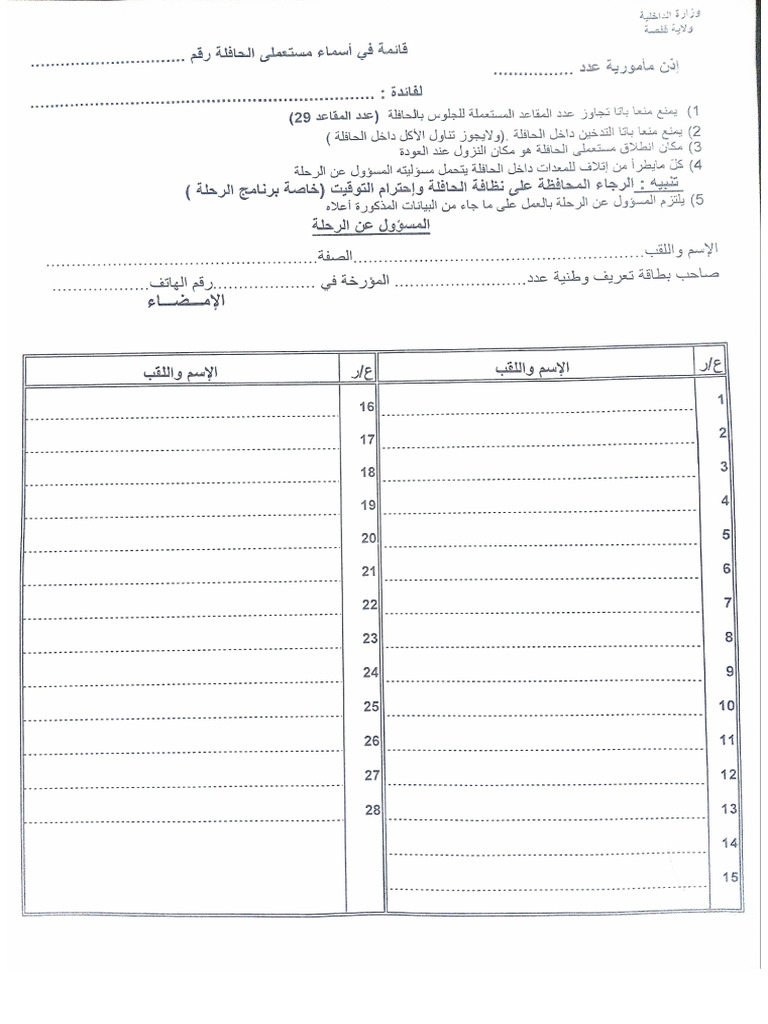 وزارة الداخلية
ولاية قفصة
قائمة في أسماء مستعملي الحافلة رقم ..............................
إذن مأمورية عدد ................
لفائدة : ......................................................................
1) يمنع منعا باتا تجاوز عدد المقاعد المستعملة للجلوس بالحافلة (عدد المقاعد 29)
2) يمنع منعا باتا التدخين داخل الحافلة .(ولايجوز تناول الأكل داخل الحافلة )
3) مكان انطلاق مستعملى الحافلة هو مكان النزول عند العودة
4) كلّ مايطرأ من إتلاف للمعدات داخل الحافلة يتحمل مسؤليته المسؤول عن الرحلة
تنبيه : الرجاء المحافظة على نظافة الحافلة وإحترام التوقيت (خاصة برنامج الرحلة )
5) يلتزم المسؤول عن الرحلة بالعمل على ما جاء من البيانات المذكورة أعلاه
المسؤول عن الرحلة
الإسم واللقب......................................................الصفة......................................................
صاحب بطاقة تعريف وطنية عدد.......................... المؤرخة في ....................رقم الهاتف....................
الإمـــضـــــاء
ع/ر الإسم واللقب ع/ر الإسم واللقب
1 16
2 17
3 18
4 19
5 20
6 21
7 22
8 23
9 24
10 25
11 26
12 27
13 28
14
15